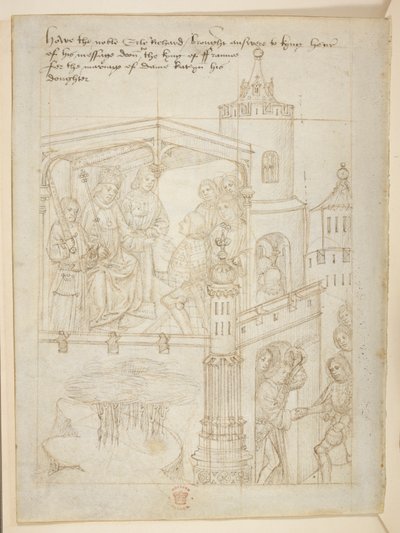 Howe the noble Erle Richard brought answere to kyng henr
of his message doon to the kyng of Fraunce
for the mariage of dame Kateryn his
doughter